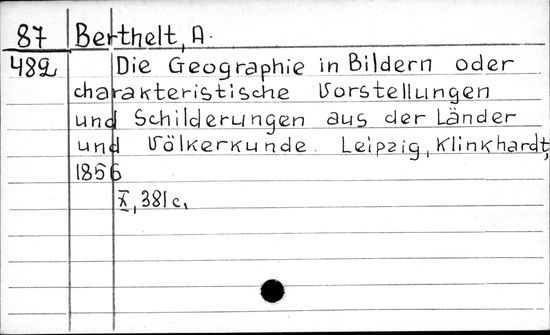 87 Berthelt, A.
482 Die Geographie in Bildern oder
charakteristische Vorstellungen
und Schilderungen aus der Länder
und Völkerkunde. Leipzig, Klinkhardt,
1856
X, 381 c.